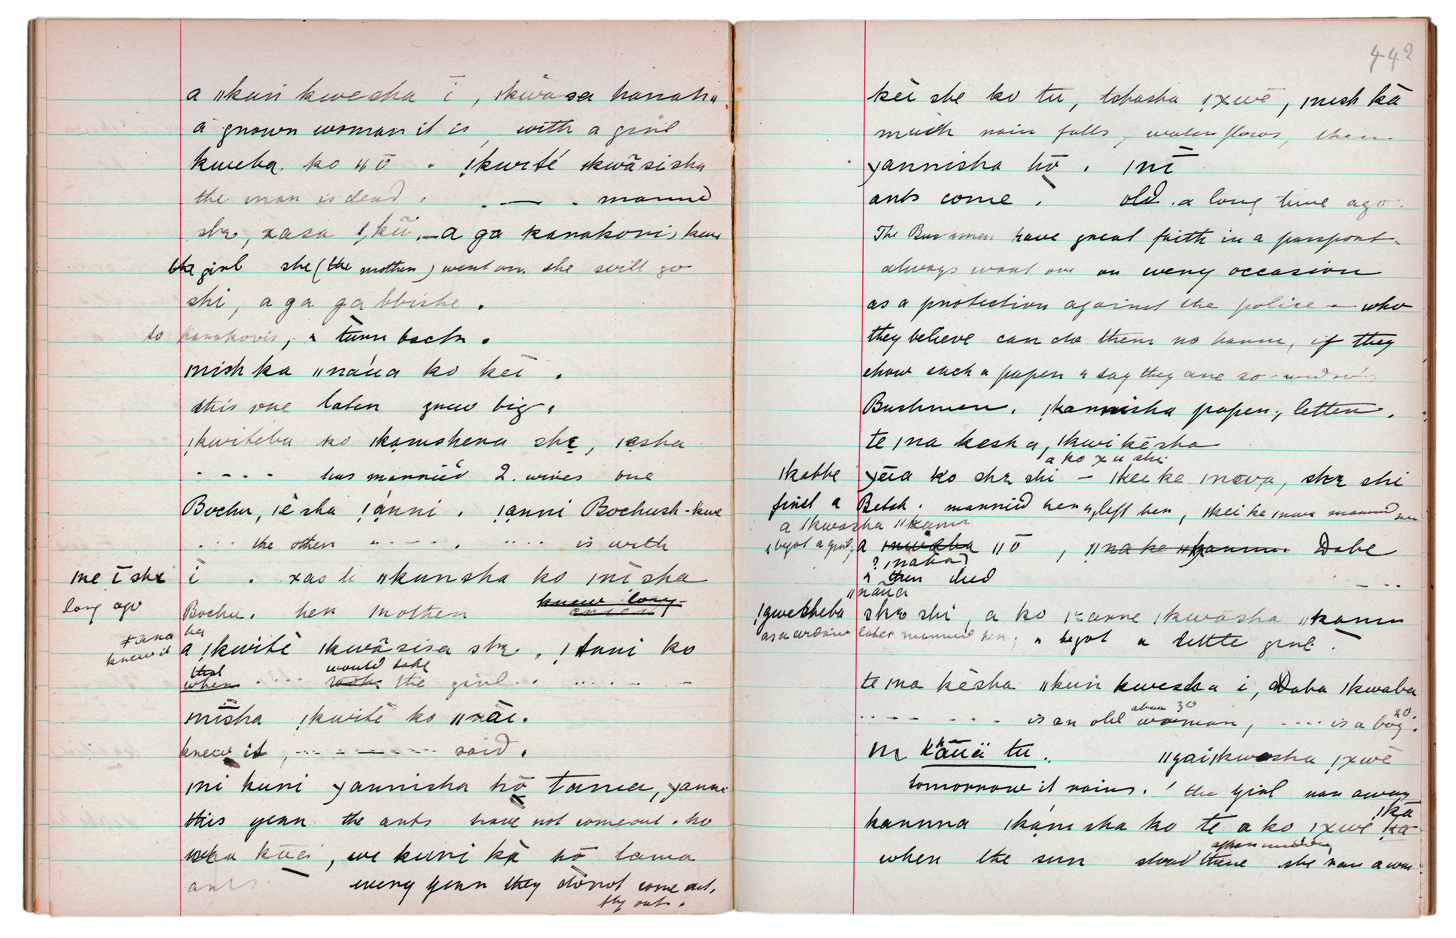 a ǁkuri kwesha ī, ǀkwāsa hanahǁ
a grown woman it is, with a girl
kweba. ko ǁō. ǃkwité ǀkwāsisha
the man is dead. . — . married
she, xasa ǃkū, — a ga kanakovi, kwe
the girl she (the mother) went on. she will go
shi, a ga ga bbishe.
to kanakovis, & turn back.
mish ka ǁnáüa ko kēī.
this one later grew big.
ǃkwitéba ko ǀkamshera she, ǀesha
. - - . has married 2. wives one
Bochu, ǀé sha ǃánni. ǃanni Bochush-kwe
. the other " - - - . " " is with
me ī she ī . xas ti ǁkunsha ko ǀnīsha
long ago Bochu. her mother knew long
xana knew it her a ǃkwité ǀkwāsisa she. ǃtani ko
that when . . . . would take took the girl . . . . . . –
mīsha ǃkwité ko ǁnāe.
knew it, . . . . . . . . said.
ǀni kuri yannisha hō tama, yanni
this year the ants have not come out. ho
sha kūa, we kuri kà hō tama
ants. every year they do not come out.
they out.
442
kēi she ko tu, tshasha ǃxwē, ǀnish kā
much rain falls, water flows, then
yannisha hō. ǀnī
ants come. old. a long time ago.
The Bushmen have great faith in a passport
always want one on every occasion
as a protection against the police – who
they believe can do them no harm, if they
show such a paper & say they are so-and-so's
Bushmen. ǃkannisha paper, letter.
te ǀna kesha, ǀkwikēsha
a ko xu shi
ǀkabbe yēia ko she shi – ǀkei ke ǀnova, she shi
first a Betch. married her & left her, ǀkei ke ǀnova married her
a ǀkwasha ǁkamr
& begot a girl, a ǀnwaba ǁō, ǁna ke ǁkamm. Dabe
? ǀnaba) . - - .
& then died
ǁnáüa
ǀgwesheba she shi, a ko ǀxanne ǀkwāsha ǁkamm
as a widow later married her, & begot a little girl.
te na kēsha ǁkuri kwesha i, Daba ǀkwaba
. . - . . - - . is an old woman, about 30 . . . . is a boy. 20.
m káüä tu. ǁgaiǀkwasha ǃxwē
tomorrow it rains. the girl ran away
hannna ǀkám sha ko te a ko ǃxwē ǀkā ka
when the sun stood there afternoon she ran away